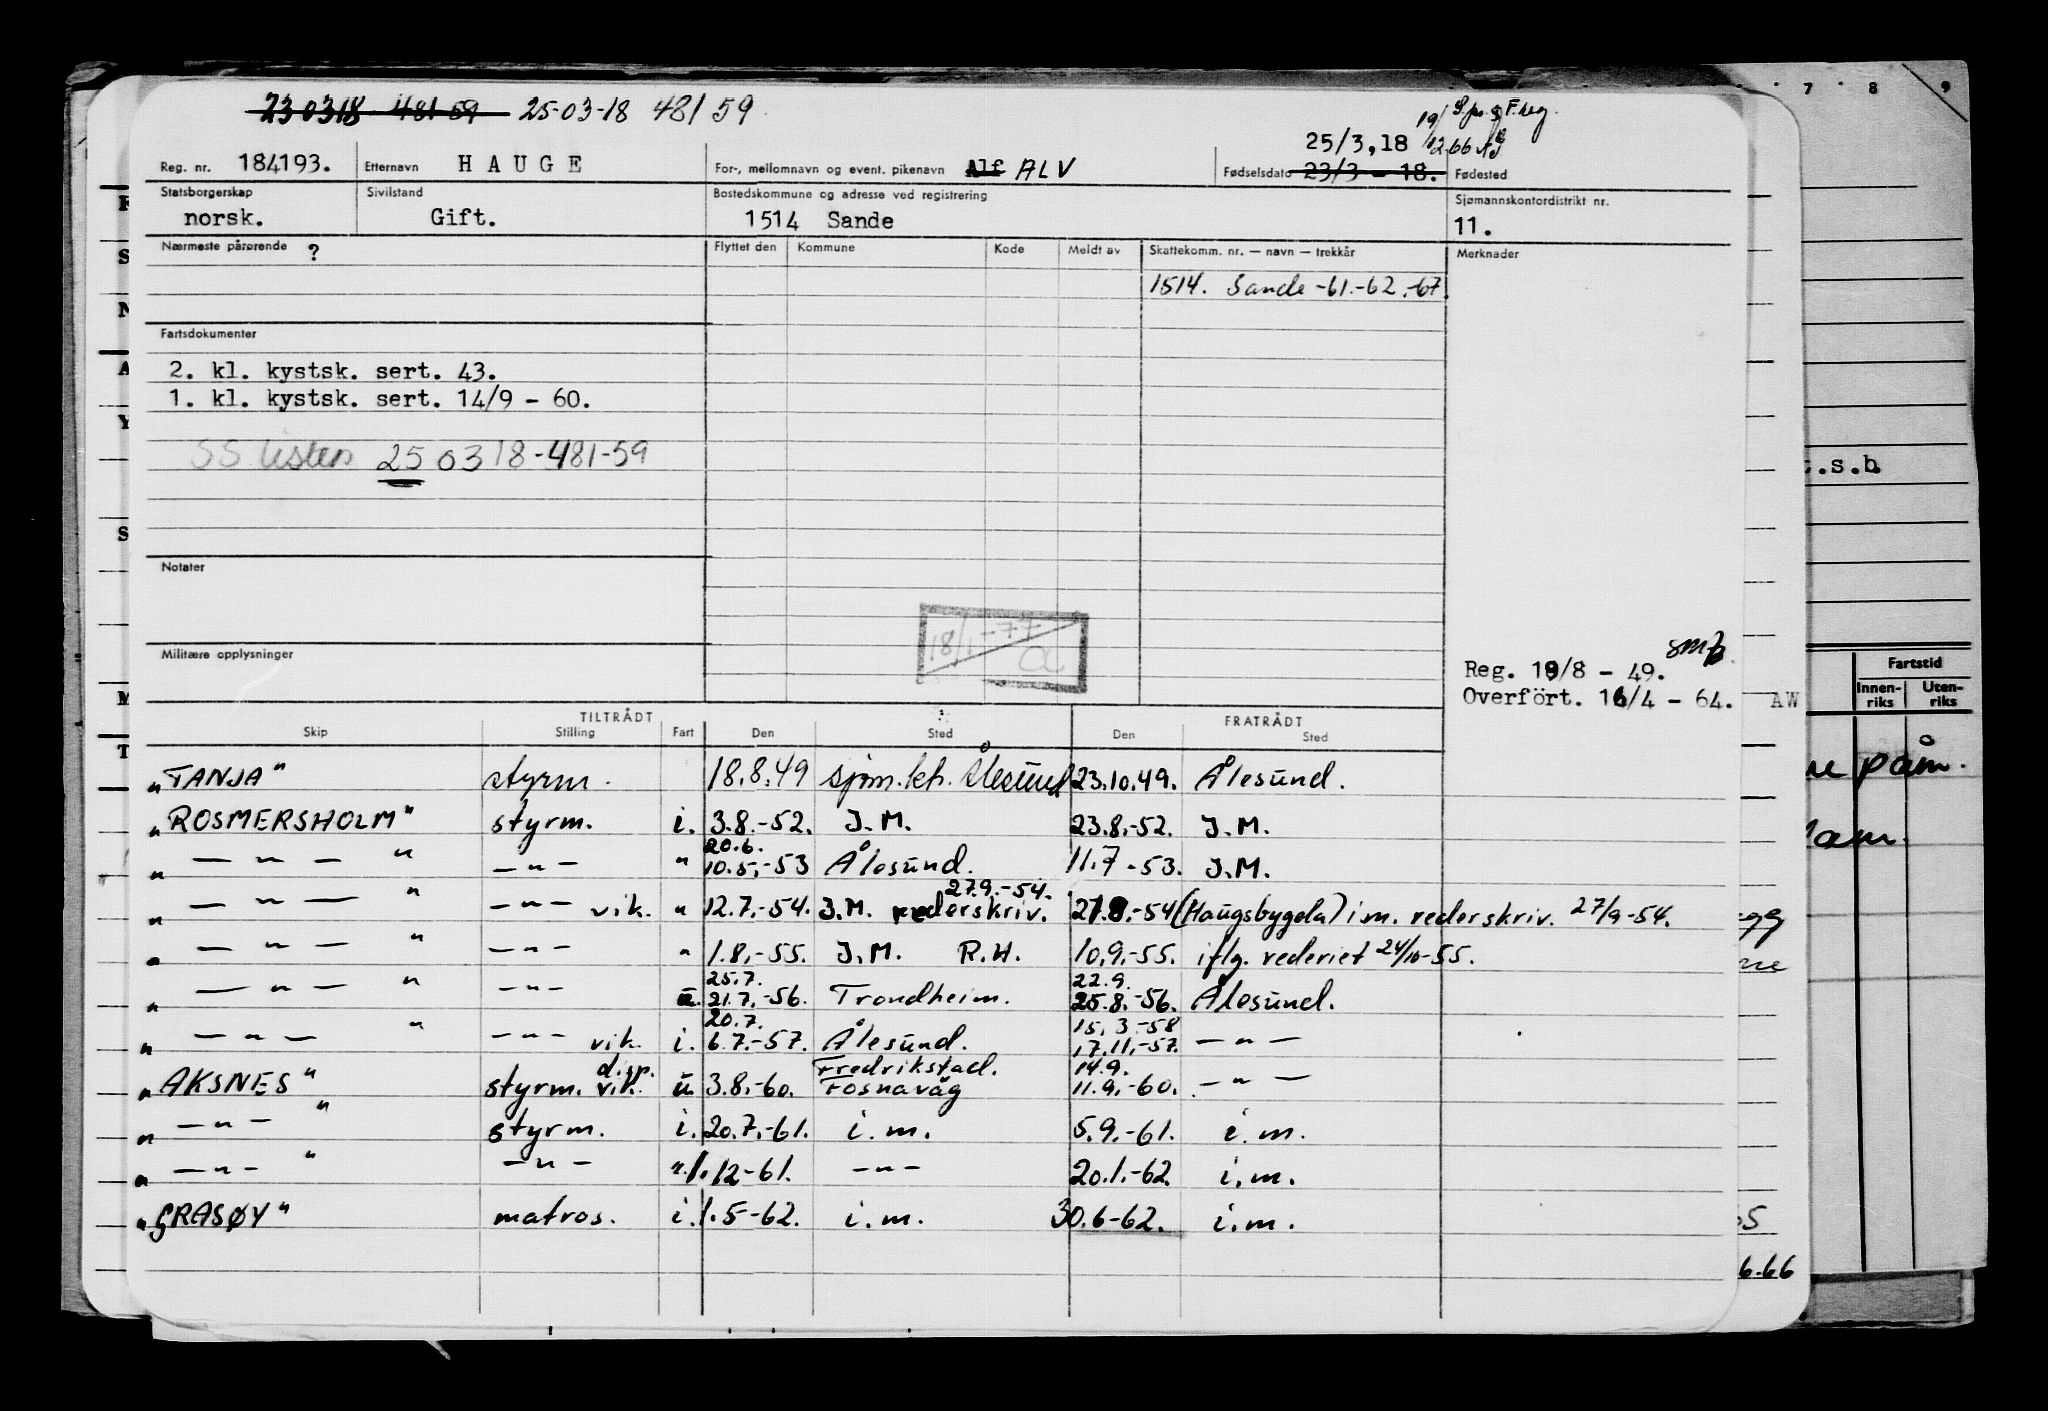 230318 481 59 25-03-18 48159
25/3,18
Reg. nr. 184193. Etternavn HAUGE For-, mellomnavn og event. pikenavn Alf ALV Fødselsdato 23/3 - 18. Fødested
Statsborgerskap Sivilstand Bostedskommune og adresse ved registrering Sjømannskontordistrikt nr.
norsk. Gift. 1514 Sande 11.
Nærmeste pårørende ? Flyttet den Kommune Kode Meldt av Skattekomm. nr. — navn — trekkår Merknader
1514. Sande -61.-62.-67.
Fartsdokumenter
2. kl. kystsk. sert. 43.
1. kl. kystsk. sert. 14/9 - 60.
SS listen 250318-481-59
Notater
18/1-77
Militære opplysninger
Reg. 19/8 - 49.
Overført. 16/4 - 64. AW
TILTRÅDT FRATRÅDT
Skip Stilling Fart Den Sted Den Sted
"TANJA" styrm. 18.8.49 sjøm.ktr. Ålesund 23.10.49. Ålesund.
"ROSMERSHOLM" styrm. i. 3.8.-52. I.M. 23.8.-52. I.M.
20.6.
" — " — " — " — " 10.5.-53 Ålesund. 11.7-53. I.M.
27.9.-54.
" — " — " — " — vik. " 12.7.-54. I.M. rederskriv. 21.8.-54 (Haugsbygda) i.m. rederskriv. 27/9-54.
" — " — " — " — " 1.8.-55. I.M. R.H. 10.9.-55. iflg. rederiet 24/10-55.
25.7. 22.9.
" — " — " — " — u. 21.7.-56. Trondheim. 25.8.-56. Ålesund.
20.7. 15.3.-58
" — " — " — " — vik. i. 6.7.-57. Ålesund. 17.11.-57. — " —
disp. Fredrikstad. 14.9.
"AKSNES" styrm. vik. u. 3.8.-60. Fosnavåg 11.9.-60. — " —
" — " — " styrm. i. 20.7.-61. i.m. 5.9.-61. i.m.
" — " — " — " — ". 1.12-61. — " — 20.1.-62. i.m.
"GRASØY" matros. i. 1.5-62. i.m. 30.6-62. i.m.
7 8 9
t.s.h
Fartstid
Innen-riks Uten-riks
påm.
6.66